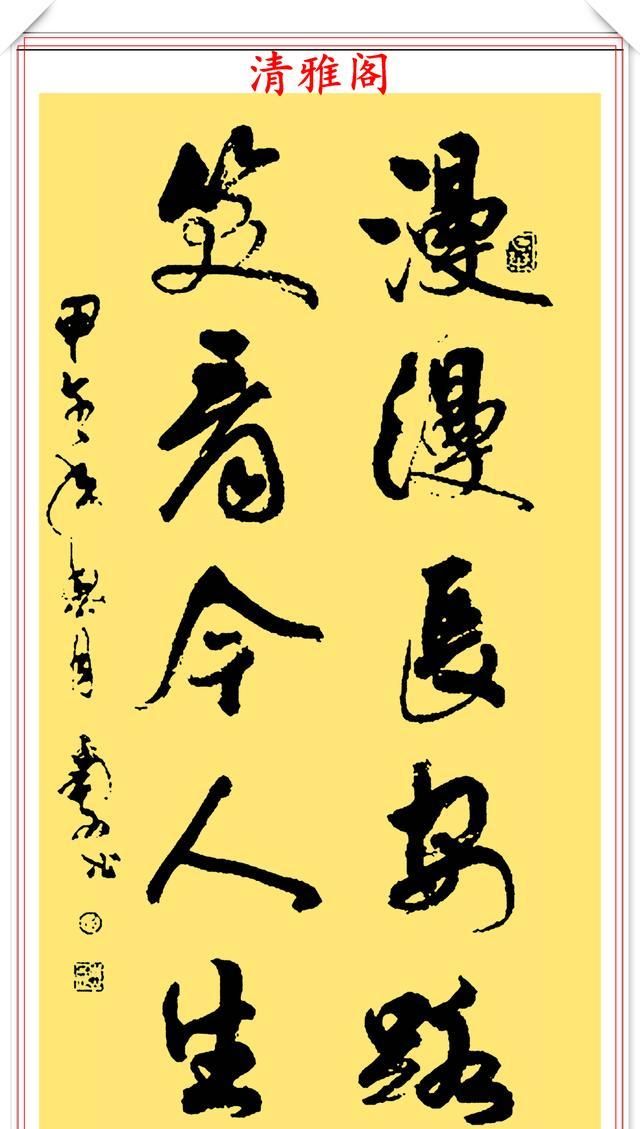 清雅阁
漫漫長安路
笑看今人生
甲午年
月